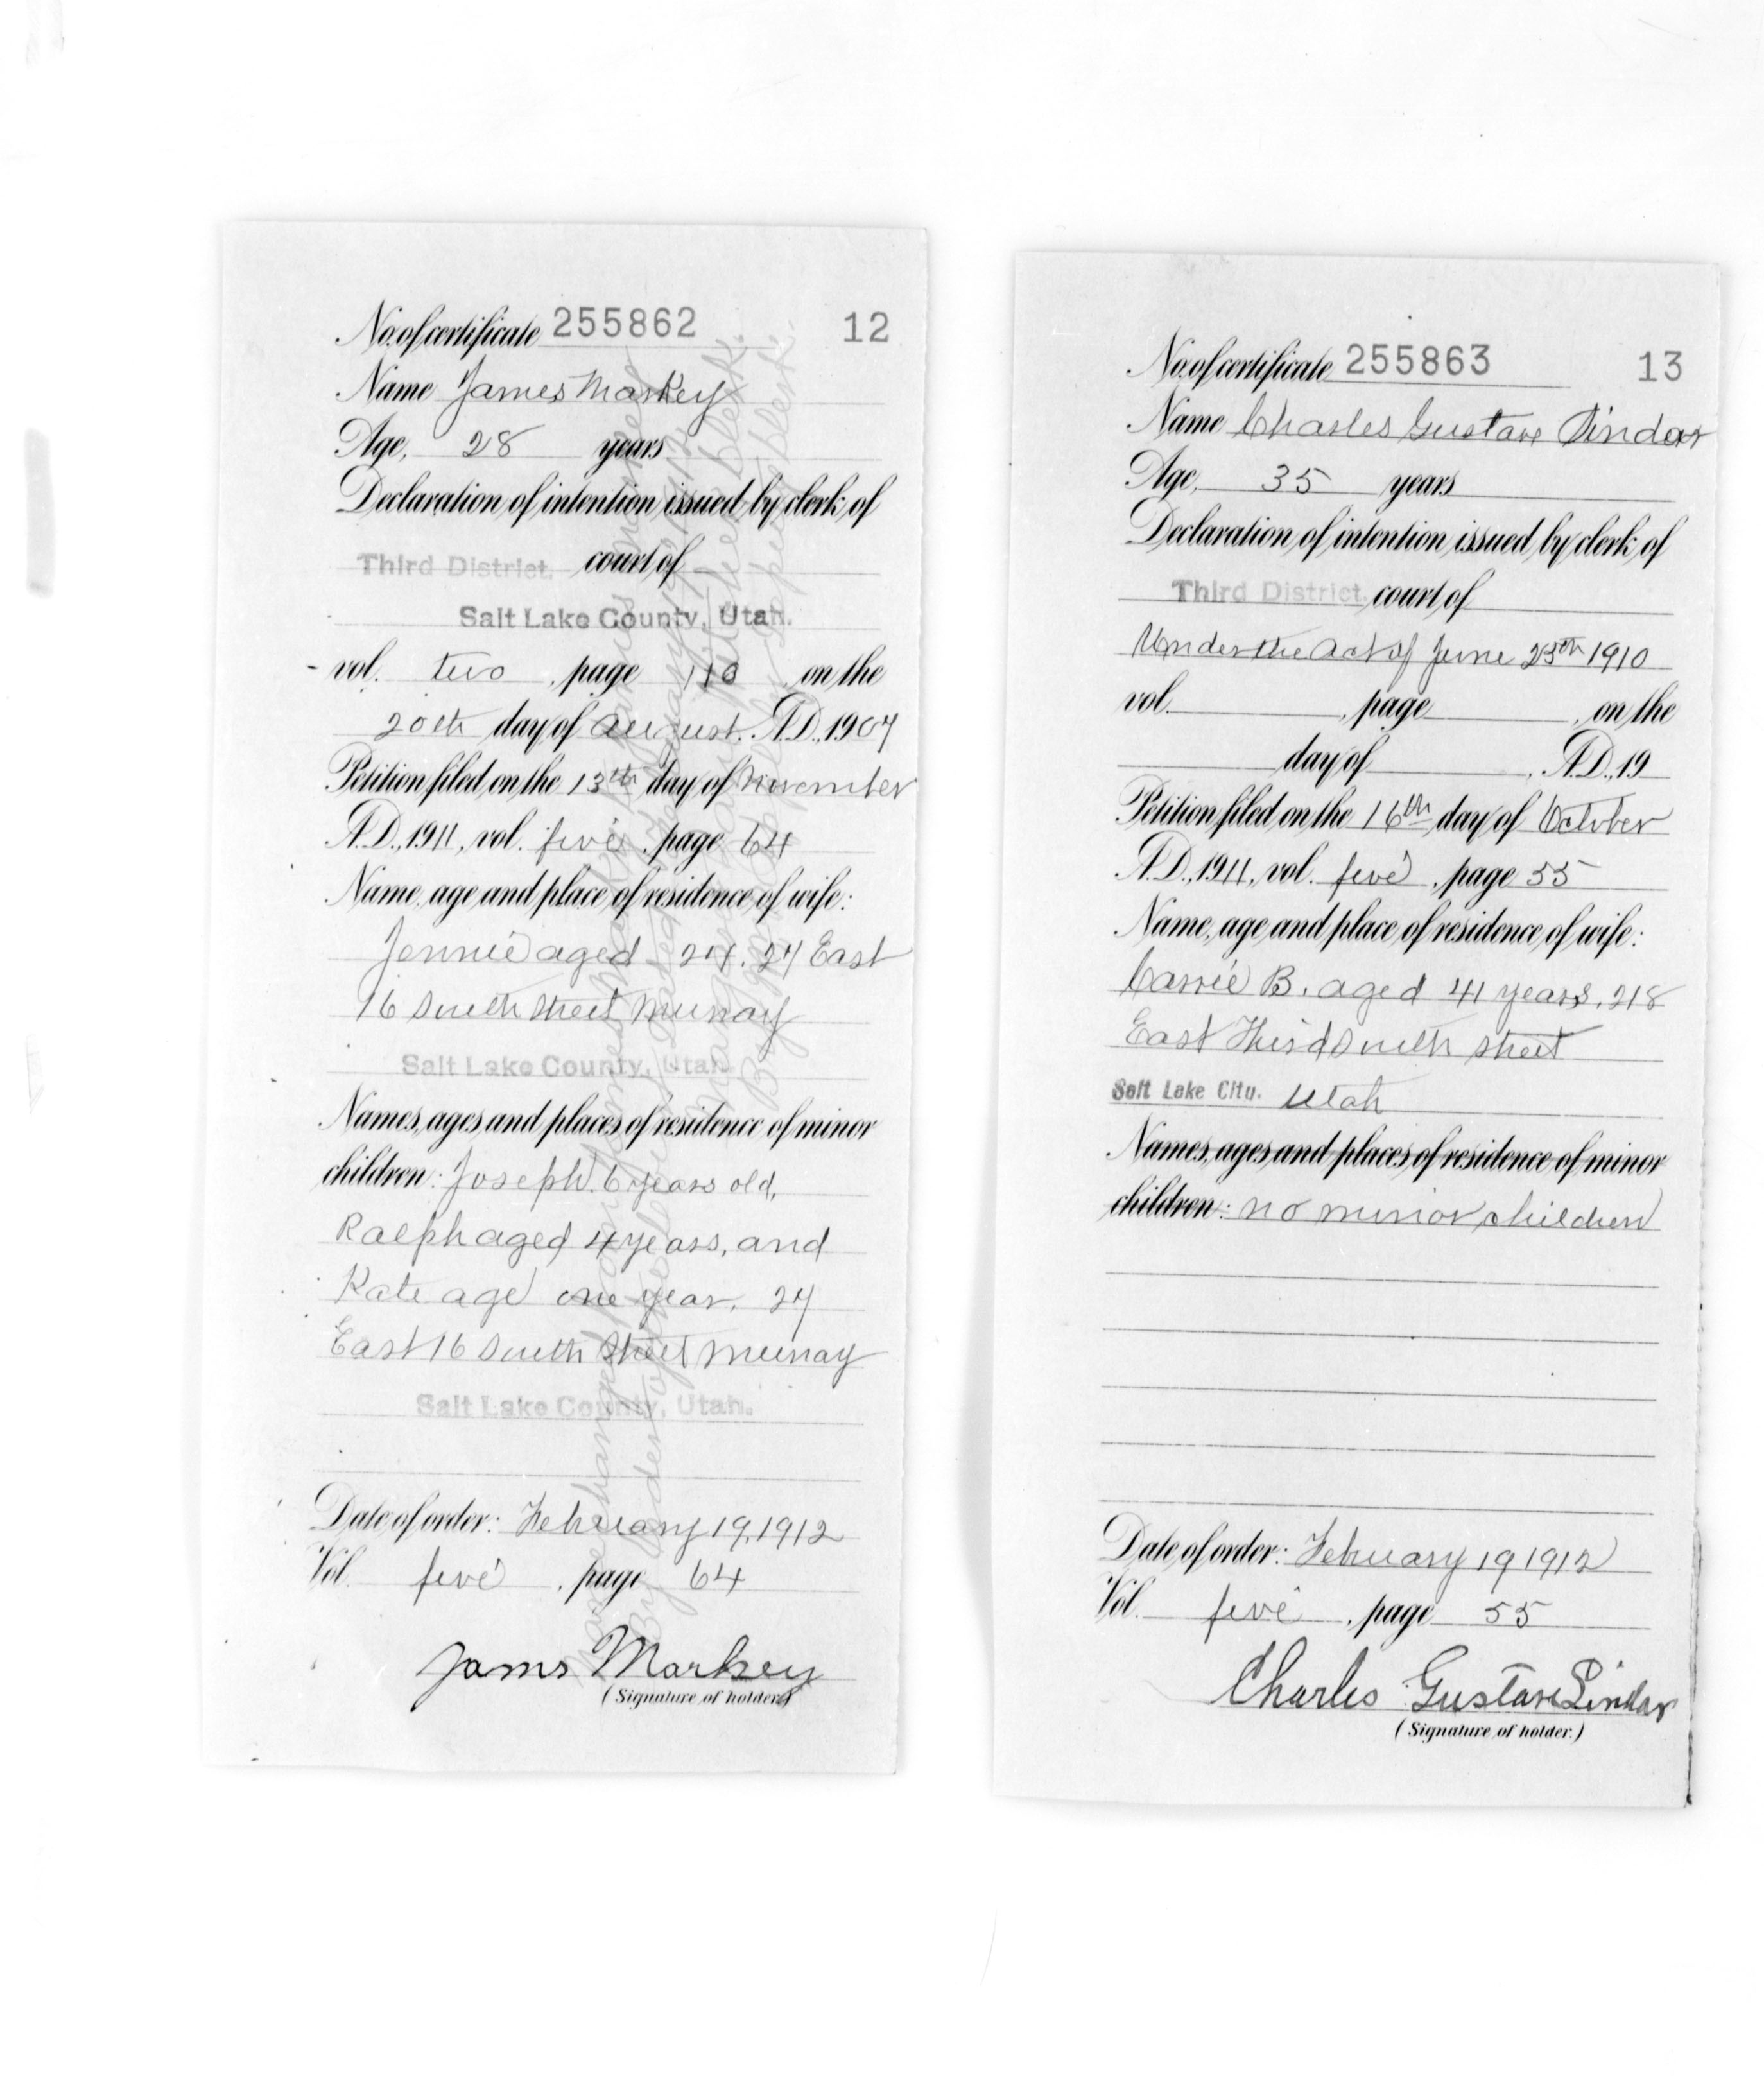 No. of certificate 255862 12
Name James Markey
Age, 28 years
Declaration of intention issued by clerk of
Third District. court of
Salt Lake County, Utah.
vol. two, page 110, on the
20th day of August. A.D., 1907
Petition filed on the 13th day of November
A.D., 1911, vol. five, page 64
Name, age and place of residence of wife:
Jennie aged 24. 27 East
16 South Street Murray
Salt Lake County, Utah.
Names, ages and places of residence of minor
children: Joseph. 6 years old,
Ralph aged 4 years, and
Kate age one year, 27
East 16 South Street Murray
Salt Lake County, Utah.
Date of order: February 19, 1912
Vol. five, page 64
James Markey
(Signature of holder)
Name changed from James
By order of
By Deputy Clerk.
No. of certificate 255863 13
Name Charles Gustave Lindar
Age, 35 years
Declaration of intention issued by clerk of
Third District. court of
Under the act of June 25th 1910
vol. , page , on the
day of , A.D., 19
Petition filed on the 16th day of October
A.D., 1911, vol. five, page 55
Name, age and place of residence of wife:
Carrie B. aged 41 years, 218
East Third South Street
Salt Lake City. Utah
Names, ages and places of residence of minor
children: no minor children
Date of order: February 19 1912
Vol. five, page 55
Charles Gustave Lindar
(Signature of holder.)